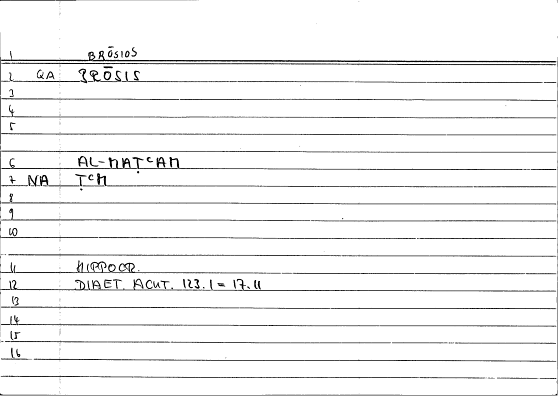 1 BRŌSIOS
2 QA BRŌSIS
3
4
5
6 AL-MAṬᶜAM
7 NA ṬᶜM
8
9
10
11 HIPPOCR.
12 DIAET. ACUT. 123.1 = 17.11
13
14
15
16